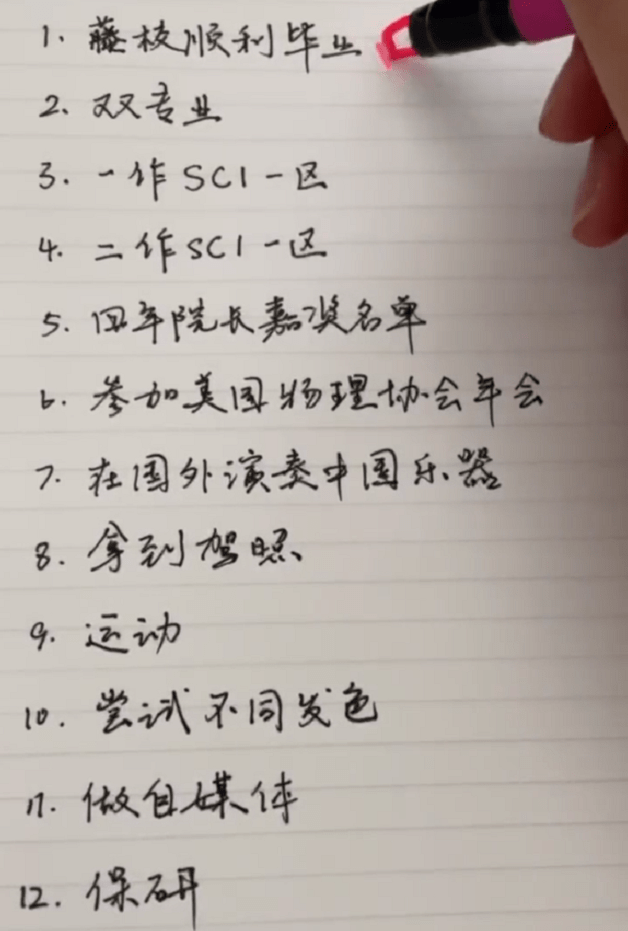 1. 藤校顺利毕业
2. 双专业
3. 一作SCI一区
4. 二作SCI一区
5. 四年院长嘉奖名单
6. 参加美国物理协会年会
7. 在国外演奏中国乐器
8. 拿到驾照
9. 运动
10. 尝试不同发色
11. 做自媒体
12. 保研